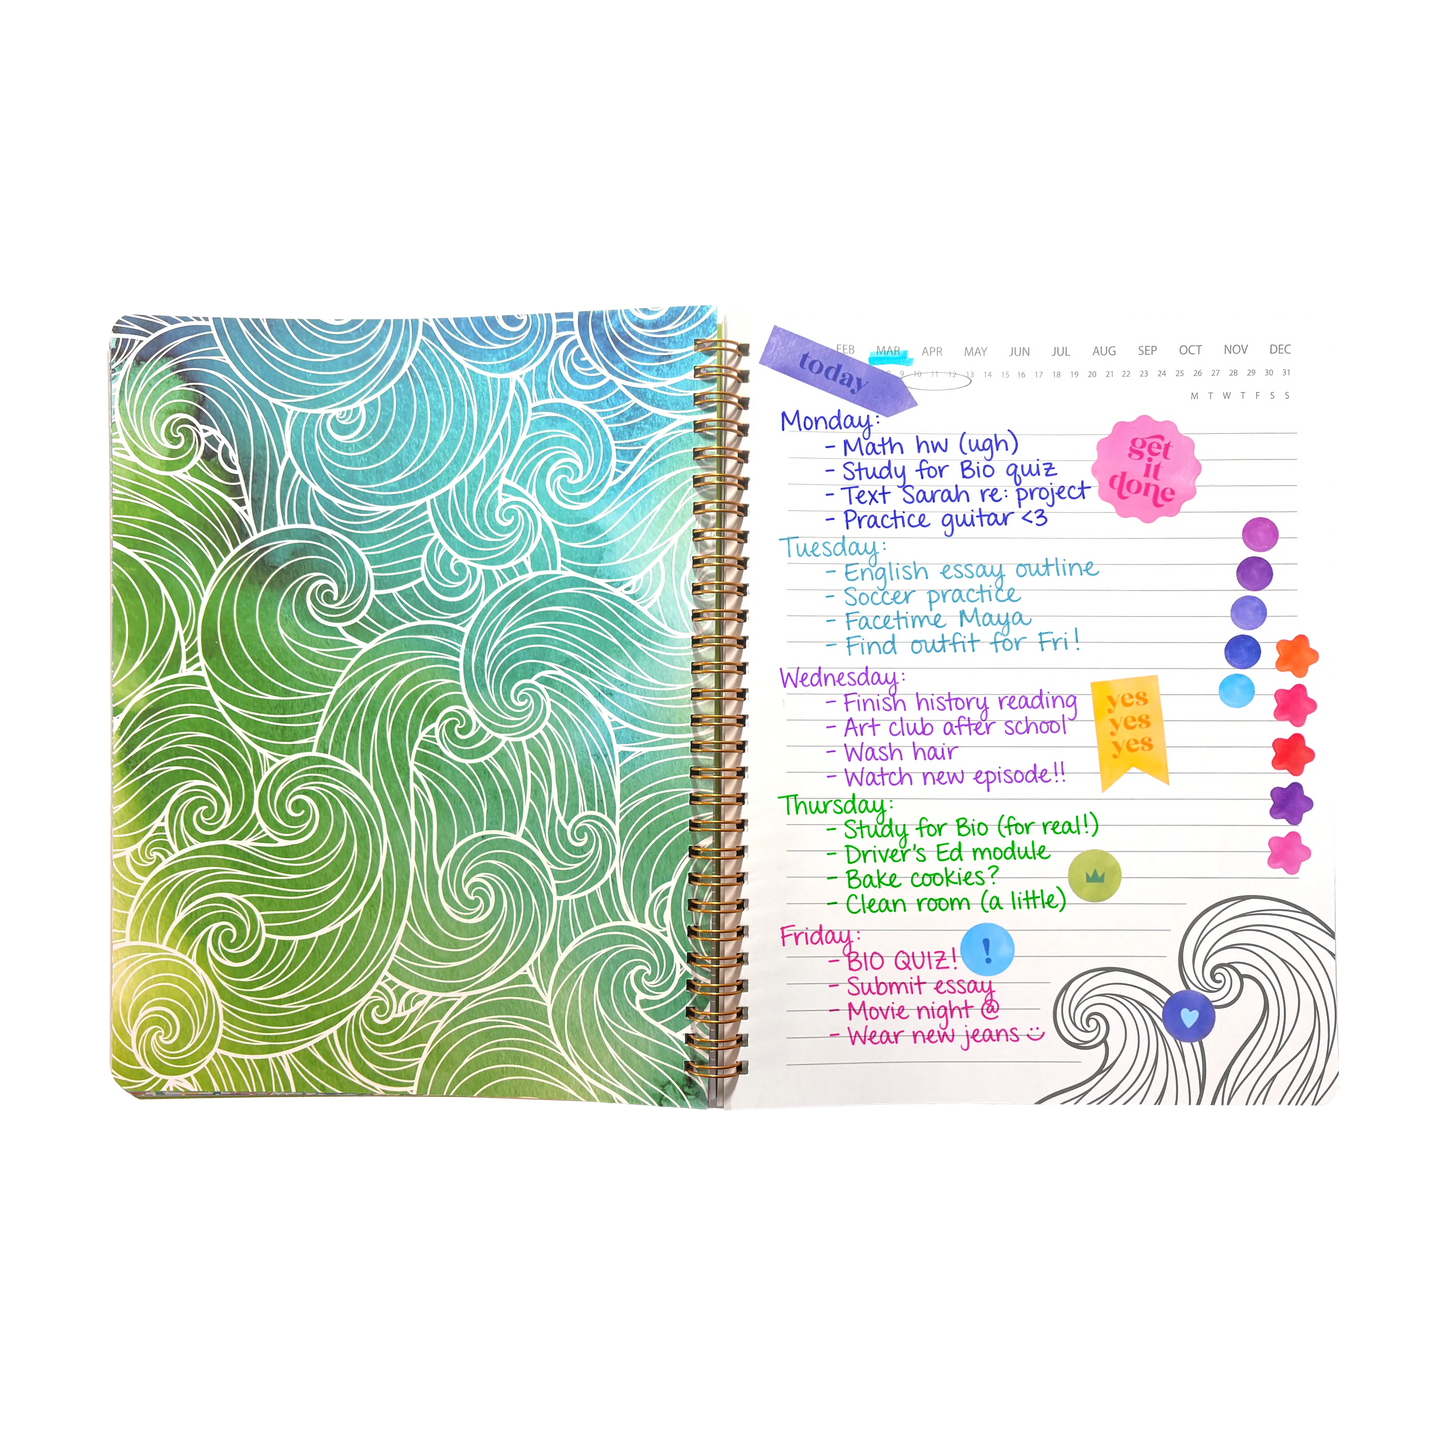 today
FEB MAR APR MAY JUN JUL AUG SEP OCT NOV DEC
9 10 11 12 13 14 15 16 17 18 19 20 21 22 23 24 25 26 27 28 29 30 31
M T W T F S S
Monday:
- Math hw (ugh)
- Study for Bio quiz
- Text Sarah re: project
- Practice guitar <3
get
it
done
Tuesday:
- English essay outline
- Soccer practice
- Facetime Maya
- Find outfit for Fri!
Wednesday:
- Finish history reading
- Art club after school
- Wash hair
- Watch new episode!!
yes
yes
yes
Thursday:
- Study for Bio (for real!)
- Driver's Ed module
- Bake cookies?
- Clean room (a little)
Friday:
- BIO QUIZ!
- Submit essay
- Movie night @
- Wear new jeans
!